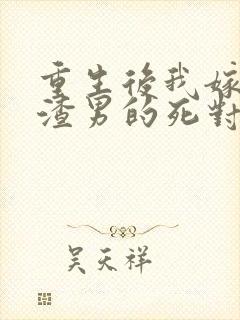 重生後我嫁
渣男的死對
吴天祥